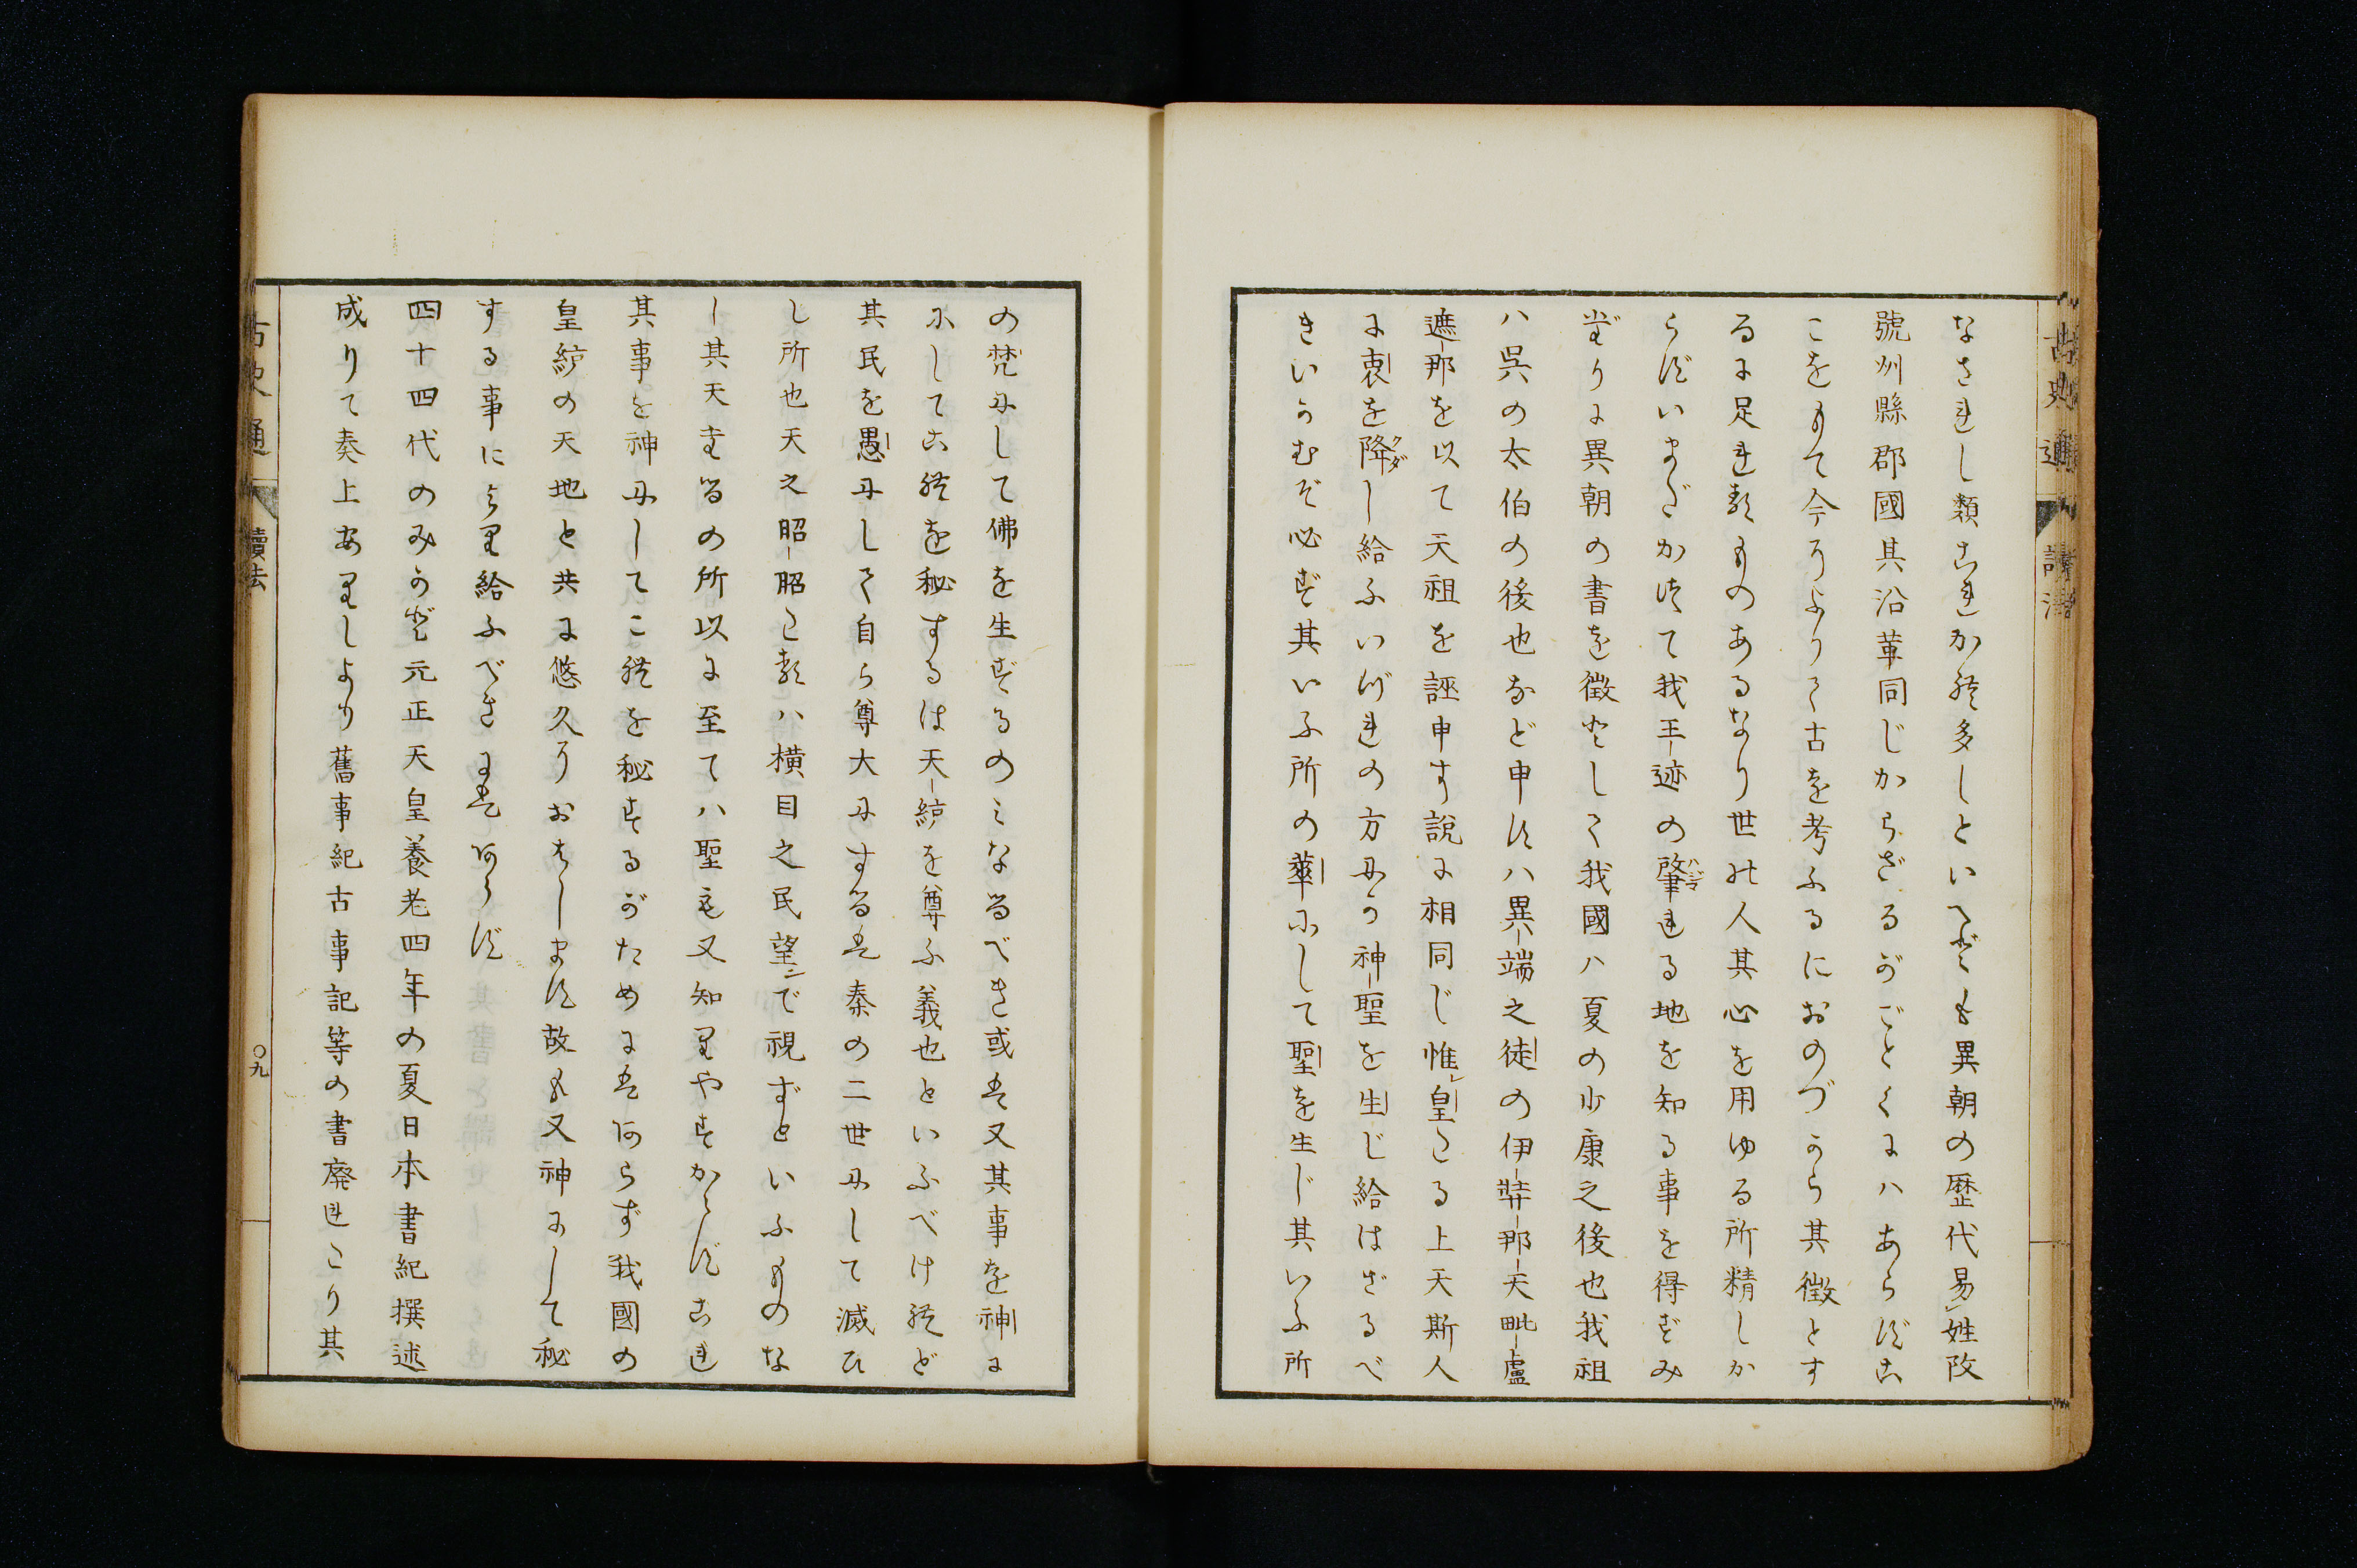 なされし類これかれ多しといへども異朝の歴代易レ姓改
號州縣郡國其沿革同じからざるがごとくにハあらずこ
こをもて今によりて古を考ふるにおのづから其徴とす
るに足れるものあるなり世の人其心を用ゆる所精しか
らずいまだかつて我王迹の肇れる地を知る事を得ずみ
だりに異朝の書を徴として我國ハ夏の少康之後也我祖
ハ呉の太伯の後也など申すハ異端之徒の伊弉那天毗盧
遮那を以て天祖を誣申す説に相同じ惟レ皇たる上天斯人
に衷を降し給ふいづれの方にか神聖を生じ給はざるべ
きいかむぞ必ず其いふ所の華にして聖を生じ其いふ所
の梵にして佛を生ずるのミなるべき或は又其事を神に
にしてこれを秘するは天綜を尊ふ義也といふべけれど
其民を愚にして自ら尊大にするは秦の二世にして滅ひ
し所也天之昭昭たるハ横目之民望ンで視ずといふものな
し其天たるの所以に至てハ聖も又知りやすからずこれ
其事を神にしてこれを秘するがために はあらず我國の
皇綜の天地と共に悠久におはします故も又神にして秘
する事により給ふべきにはあらず
四十四代のみかど元正天皇養老四年の夏日本書紀撰述
成りて奏上ありしより舊事紀古事記等の書廃れたり其
古史通
讀法
〇九